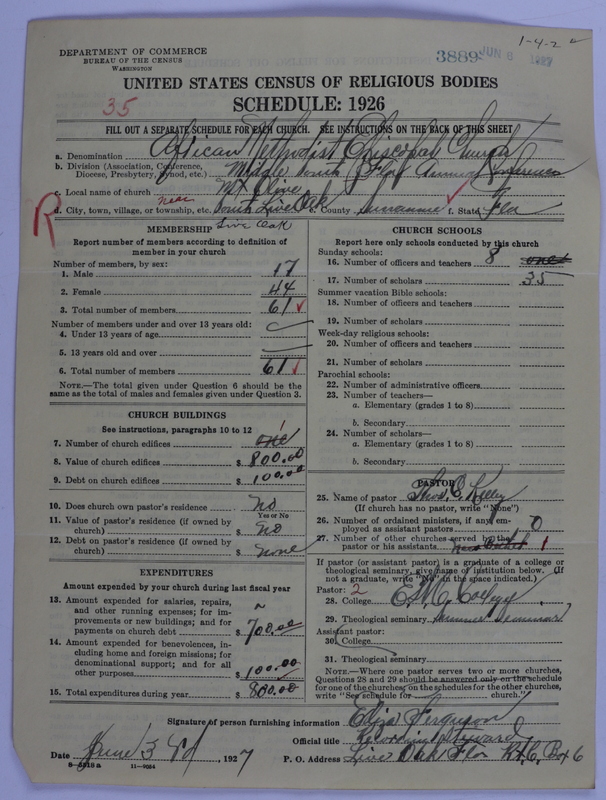 1-4-2
DEPARTMENT OF COMMERCE
BUREAU OF THE CENSUS
WASHINGTON
3889 JUN 6 1927
UNITED STATES CENSUS OF RELIGIOUS BODIES
SCHEDULE: 1926
35
FILL OUT A SEPARATE SCHEDULE FOR EACH CHURCH. SEE INSTRUCTIONS ON THE BACK OF THIS SHEET
a. Denomination African Methodist Episcopal Church
b. Division (Association, Conference, Diocese, Presbytery, Synod, etc.) Middle South Flor Annual Conference
c. Local name of church Mt Olive
R
d. City, town, village, or township, etc. near South Live Oak e. County Suwannee f. State Fla
Live Oak
MEMBERSHIP
Report number of members according to definition of member in your church
Number of members, by sex:
1. Male 17
2. Female 44
3. Total number of members 61
Number of members under and over 13 years old:
4. Under 13 years of age
5. 13 years old and over
6. Total number of members 61
NOTE.—The total given under Question 6 should be the
same as the total of males and females given under Question 3.
CHURCH BUILDINGS
See instructions, paragraphs 10 to 12
7. Number of church edifices one 1
8. Value of church edifices $ 800.00
9. Debt on church edifices $ 100.00
10. Does church own pastor's residence No
Yes or No
11. Value of pastor's residence (if owned by church) $ No
12. Debt on pastor's residence (if owned by church) $ none
EXPENDITURES
Amount expended by your church during last fiscal year
13. Amount expended for salaries, repairs,
and other running expenses; for improvements or new buildings; and for
payments on church debt $ 700.00
14. Amount expended for benevolences, including home and foreign missions; for
denominational support; and for all
other purposes $ 100.00
15. Total expenditures during year $ 800.00
CHURCH SCHOOLS
Report here only schools conducted by this church
Sunday schools:
16. Number of officers and teachers 8
17. Number of scholars 35
Summer vacation Bible schools:
18. Number of officers and teachers
19. Number of scholars
Week-day religious schools:
20. Number of officers and teachers
21. Number of scholars
Parochial schools:
22. Number of administrative officers
23. Number of teachers—
a. Elementary (grades 1 to 8)
b. Secondary
24. Number of scholars—
a. Elementary (grades 1 to 8)
b. Secondary
PASTOR
25. Name of pastor Thos. E. Kelly
(If church has no pastor, write "None")
26. Number of ordained ministers, if any, employed as assistant pastors 0
27. Number of other churches served by the
pastor or his assistants 1
If pastor (or assistant pastor) is a graduate of a college or
theological seminary, give name of institution below. (If
not a graduate, write "No" in the space indicated.)
Pastor: 2
28. College College
29. Theological seminary
Assistant pastor:
30. College
31. Theological seminary
NOTE.—Where one pastor serves two or more churches,
Questions 28 and 29 should be answered only on the schedule
for one of the churches; on the schedules for the other churches,
write "See schedule for church."
Signature of person furnishing information Eliza Ferguson
Official title Recording Steward
Date June 3rd, 1927 P. O. Address Live Oak Flor Rt. C, Box 6
8-5518a 11-9054